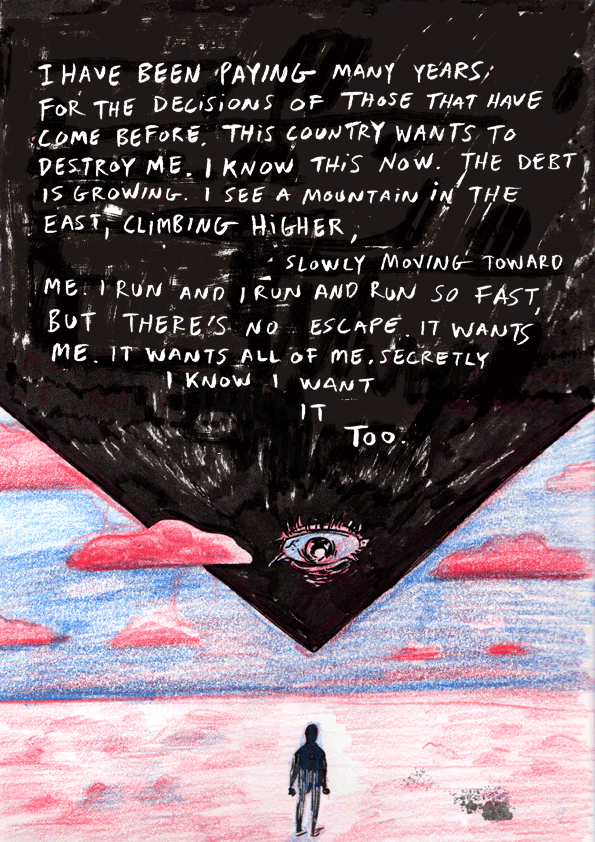 I HAVE BEEN PAYING MANY YEARS,
FOR THE DECISIONS OF THOSE THAT HAVE
COME BEFORE. THIS COUNTRY WANTS TO
DESTROY ME. I KNOW THIS NOW. THE DEBT
IS GROWING. I SEE A MOUNTAIN IN THE
EAST, CLIMBING HIGHER,
SLOWLY MOVING TOWARD
ME. I RUN AND I RUN AND RUN SO FAST,
BUT THERE'S NO ESCAPE. IT WANTS
ME. IT WANTS ALL OF ME. SECRETLY
I KNOW I WANT
IT
TOO.